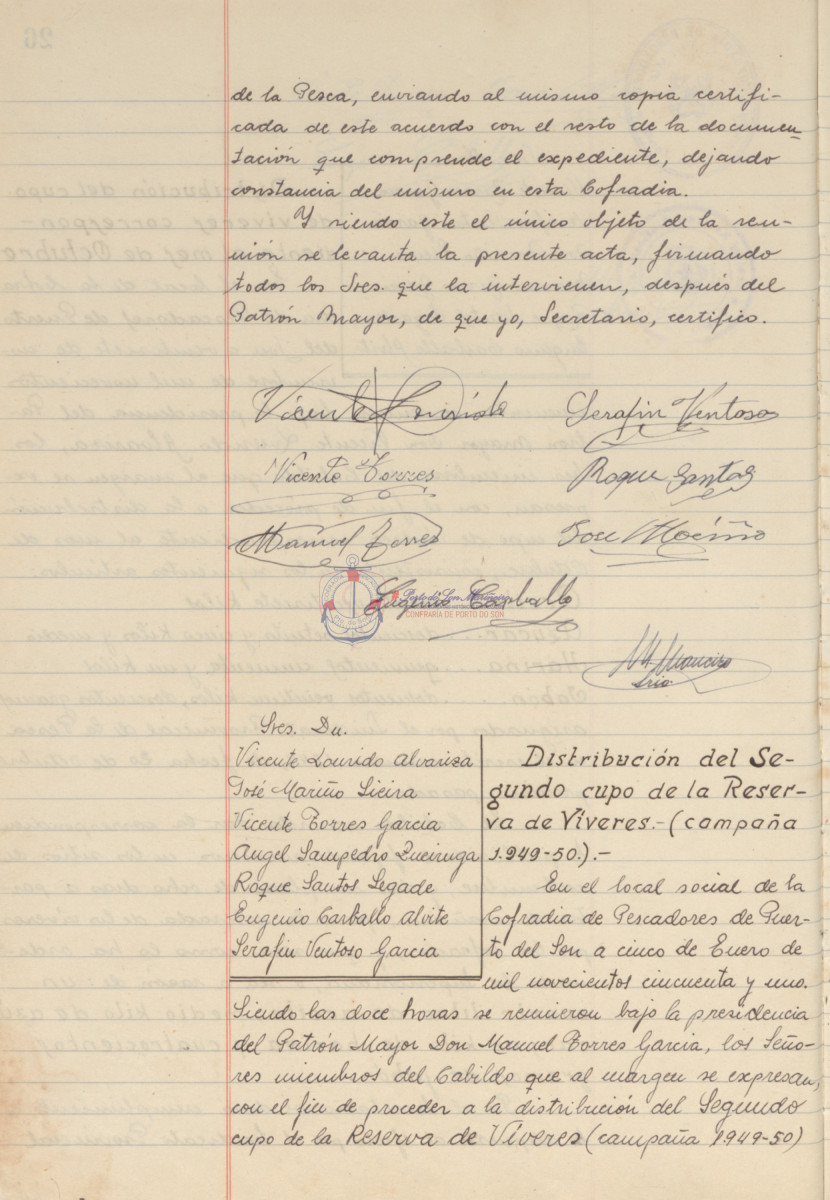 de la Pesca, enviando al mismo copia certifi-
cada de este acuerdo con el resto de la documen-
tación que comprende el expediente, dejando
constancia del mismo en esta Cofradia.
Y siendo este el único objeto de la reu-
nión se levanta la presente acta, firmando
todos los Sres. que la intervienen, después del
Patrón Mayor, de que yo, Secretario, certifico.
Vicente Lourido
Serafin Ventoso
Vicente Torres
Roque Santos
Manuel Torres
Jose Mariño
Eugenio Carballo
Porto do Son
CONFRARÍA DE PORTO DO SON
Srio.
Sres. Du.
Vicente Lourido Alvariza
José Mariño Sieira
Vicente Torres Garcia
Angel Sampedro Queiruga
Roque Santos Segade
Eugenio Carballo Alvite
Serafin Ventoso Garcia
Distribución del Se-
gundo cupo de la Reser-
va de Víveres.-(campaña
1.949-50.).-
En el local social de la
Cofradia de Pescadores de Puer-
to del Son a cinco de Enero de
mil novecientos cincuenta y uno.
Siendo las doce horas se reunieron bajo la presidencia
del Patrón Mayor Don Manuel Torres Garcia, los Seño-
res miembros del Cabildo que al margen se expresan,
con el fin de proceder a la distribución del Segundo
cupo de la Reserva de Víveres (campaña 1.949-50)